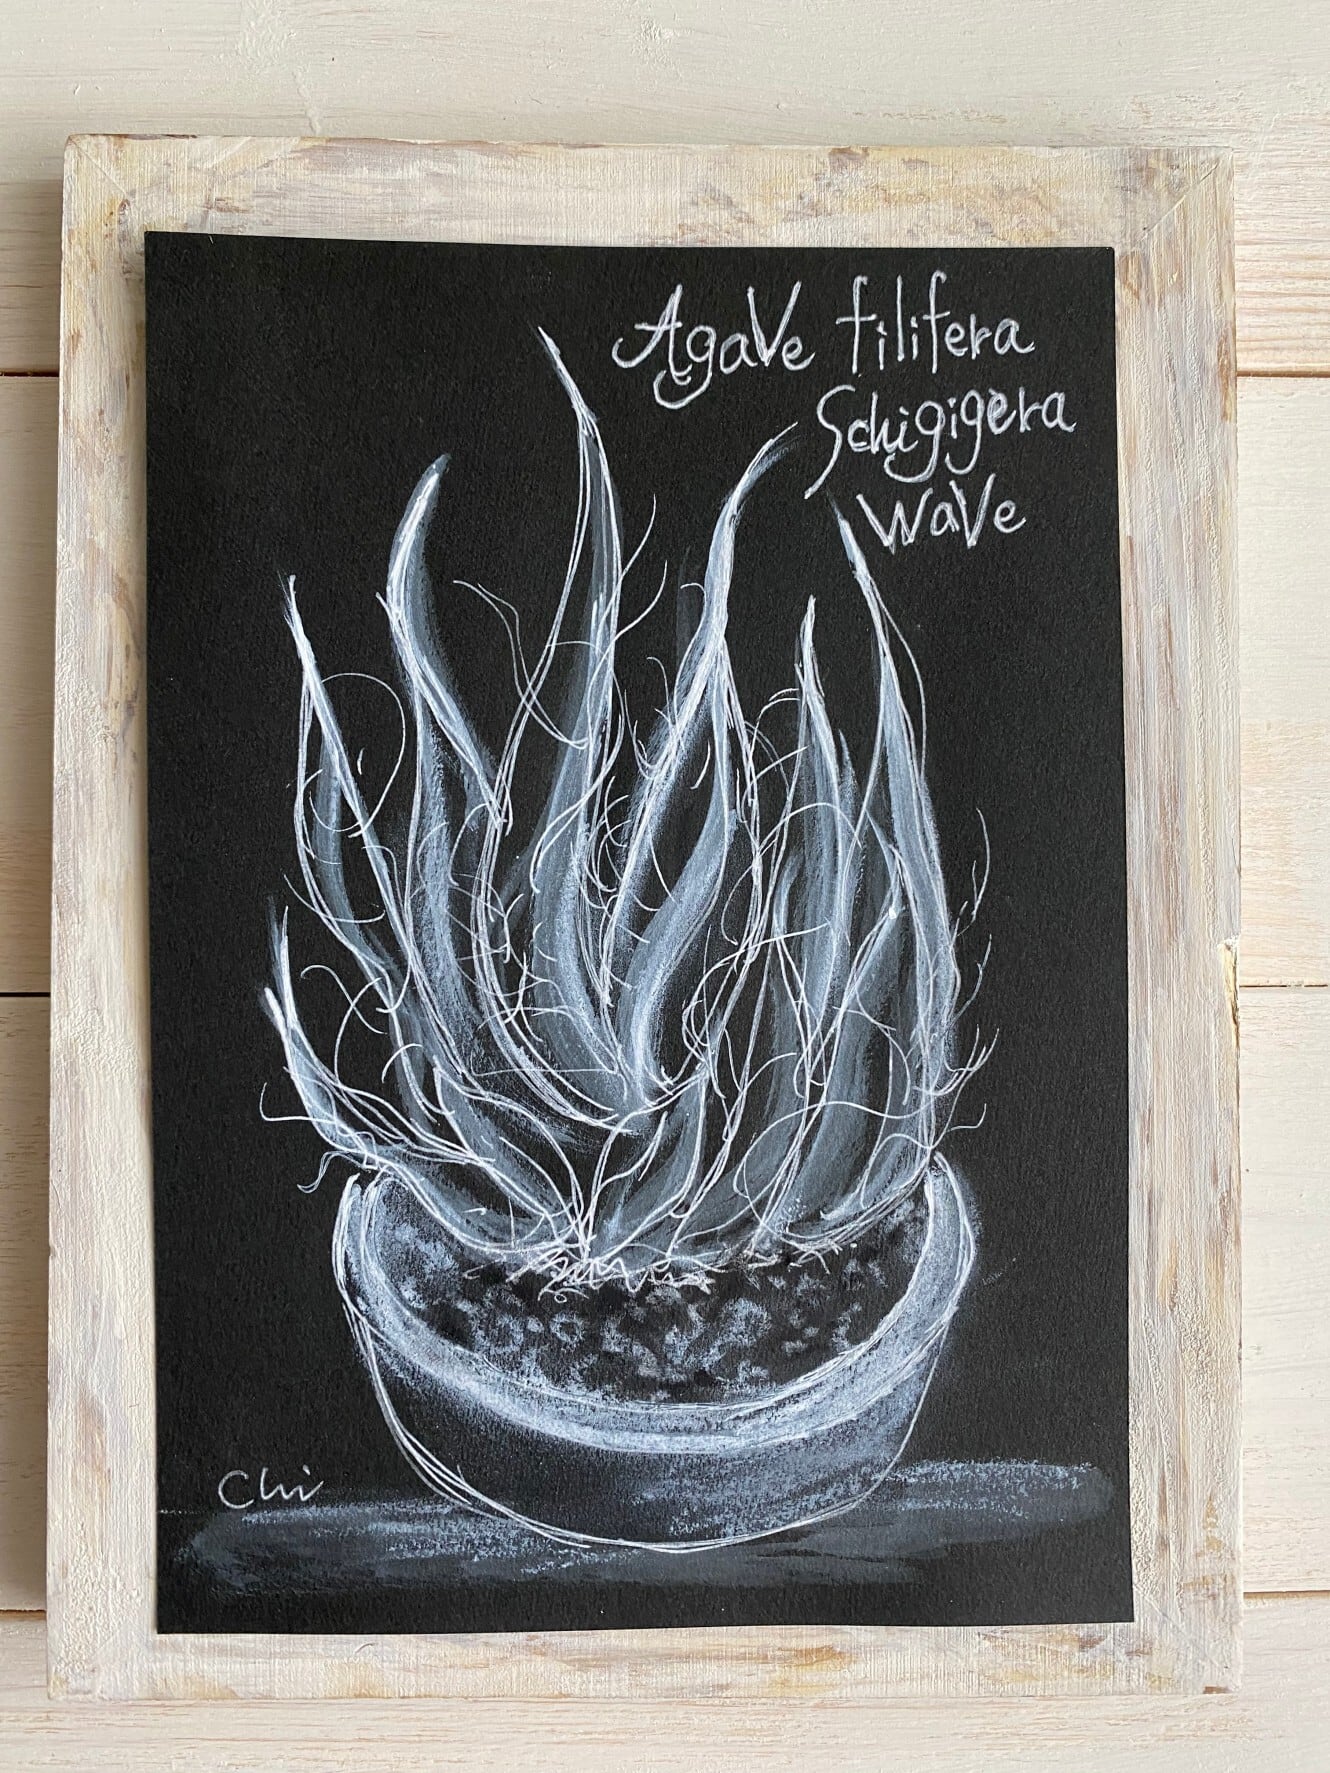 Agave filifera
Schigigera
wave
Chi